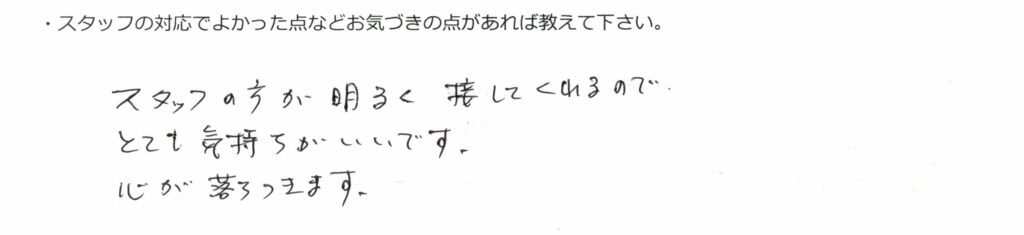 ・スタッフの対応でよかった点などお気づきの点があれば教えて下さい。
スタッフの方が明るく接してくれるので
とても気持ちがいいです。
心が落ちつきます。